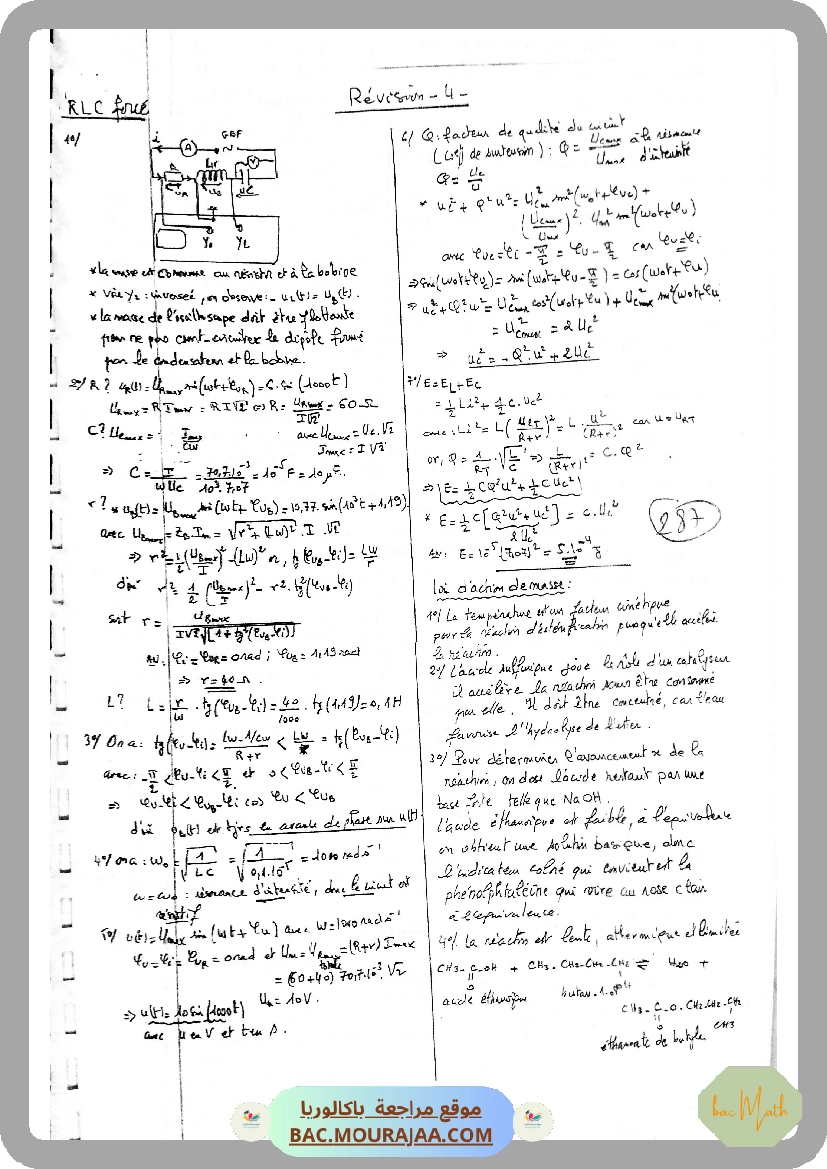 Révision - 4 -
RLC forcé
1°/
i
A
GBF
R
L,r
V
uR
uB
uC
Y1
Y2
* La masse est commune au résistor et à la bobine
* Voie Y2 : inversée, on observe : - u2(t) = uB(t).
* La masse de l'oscilloscope doit être flottante
pour ne pas court-circuiter le dipôle formé
par le condensateur et la bobine.
2°/ R? uR(t) = URmax sin(ωt+φuR) = 6 sin(1000t)
URmax = R Imax = R I√2 ⇔ R = URmax / I√2 = 60 Ω
C? UCmax = Imax / Cω avec UCmax = UC.√2
Imax = I√2
⇒ C = I / ωUC = 70,7.10⁻³ / 10³.7,07 = 10⁻⁵ F = 10 μF.
r? * uB(t) = UBmax sin(ωt+φuB) = 10,77.sin(10³t + 1,19)
avec UBmax = ZB Im = √(r²+(Lω)²) . I . √2
⇒ r² = 1/2 (UBmax / I)² - (Lω)² or, tg(φuB-φi) = Lω / r
d'où r² = 1/2 (UBmax / I)² - r².tg²(φuB-φi)
soit r = UBmax / I√2 √[1+tg²(φuB-φi)]
AN: φi = φuR = 0 rad ; φuB = 1,19 rad
⇒ r = 40 Ω.
L? L = r/ω . tg(φuB-φi) = 40/1000 . tg(1,19) = 0,1H
3°/ On a : tg(φu-φi) = (Lω-1/Cω) / (R+r) < Lω / r = tg(φuB-φi)
avec : -π/2 < φu-φi < π/2 et 0 < φuB-φi < π/2
⇒ φu-φi < φuB-φi ⇔ φu < φuB
d'où uB(t) est tjrs en avance de phase sur u(t).
4°/ on a : ω0 = √(1 / LC) = √(1 / 0,1.10⁻⁵) = 1000 rad.s⁻¹
ω = ω0 : résonance d'intensité, donc le circuit est
résistif
5°/ u(t) = Umax sin(ωt+φu) avec ω = 1000 rad.s⁻¹
φu = φi = φuR = 0 rad et Um = URmax totale = (R+r) Imax
= (60+40) 70,7.10⁻³.√2
Um = 10V.
⇒ u(t) = 10 sin(1000t)
avec u en V et t en s.
6/ Q: facteur de qualité du circuit
(coeff de surtension) : Q = UCmax / Umax à la résonance
d'intensité
Q = UC / U
* uC² + Q²u² = UCm² sin²(ω0t+φuC) +
(UCmax / Umax)² . Um² sin²(ω0t+φu)
avec φuC = φi - π/2 = φu - π/2 car φu = φi
⇒ sin(ω0t+φuC) = sin(ω0t+φu-π/2) = cos(ω0t+φu)
⇒ uC² + Q².u² = UCmax² cos²(ω0t+φu) + UCmax² sin²(ω0t+φu)
= UCmax² = 2UC²
⇒ uC² = - Q².u² + 2UC²
7°/ E = EL + EC
= 1/2 Li² + 1/2 C.uC²
avec : Li² = L(uRT / R+r)² = L . u² / (R+r)² car u = uRT
or, Q = 1/RT . √(L/C) ⇒ L / (R+r)² = C.Q²
⇒ E = 1/2 CQ²u² + 1/2 CuC²
* E = 1/2 C[Q²u² + uC²] = C.UC²
2UC²
AN: E = 10⁻⁵.(7,07)² = 5.10⁻⁴ J
287
Loi d'action de masse :
1°/ La température est un facteur cinétique
pour la réaction d'estérification puisqu'elle accélère
la réaction.
2°/ L'acide sulfurique joue le rôle d'un catalyseur
il accélère la réaction sans être consommé
par elle. Il doit être concentré, car l'eau
favorise l'hydrolyse de l'ester.
3°/ Pour déterminer l'avancement x de la
réaction, on dose l'acide restant par une
base forte telle que NaOH.
L'acide éthanoïque est faible, à l'équivalence
on obtient une solution basique, donc
l'indicateur coloré qui convient est la
phénolphtaléine qui vire au rose clair
à l'équivalence.
4°/ La réaction est lente, athermique et limitée
CH3-C-OH + CH3-CH2-CH2-CH2 ⇌ H2O +
O OH
acide éthanoïque butan-1-ol
CH3-C-O-CH2-CH2-CH2
O CH3
éthanoate de butyle
موقع مراجعة باكالوريا
BAC.MOURAJAA.COM
bac Math